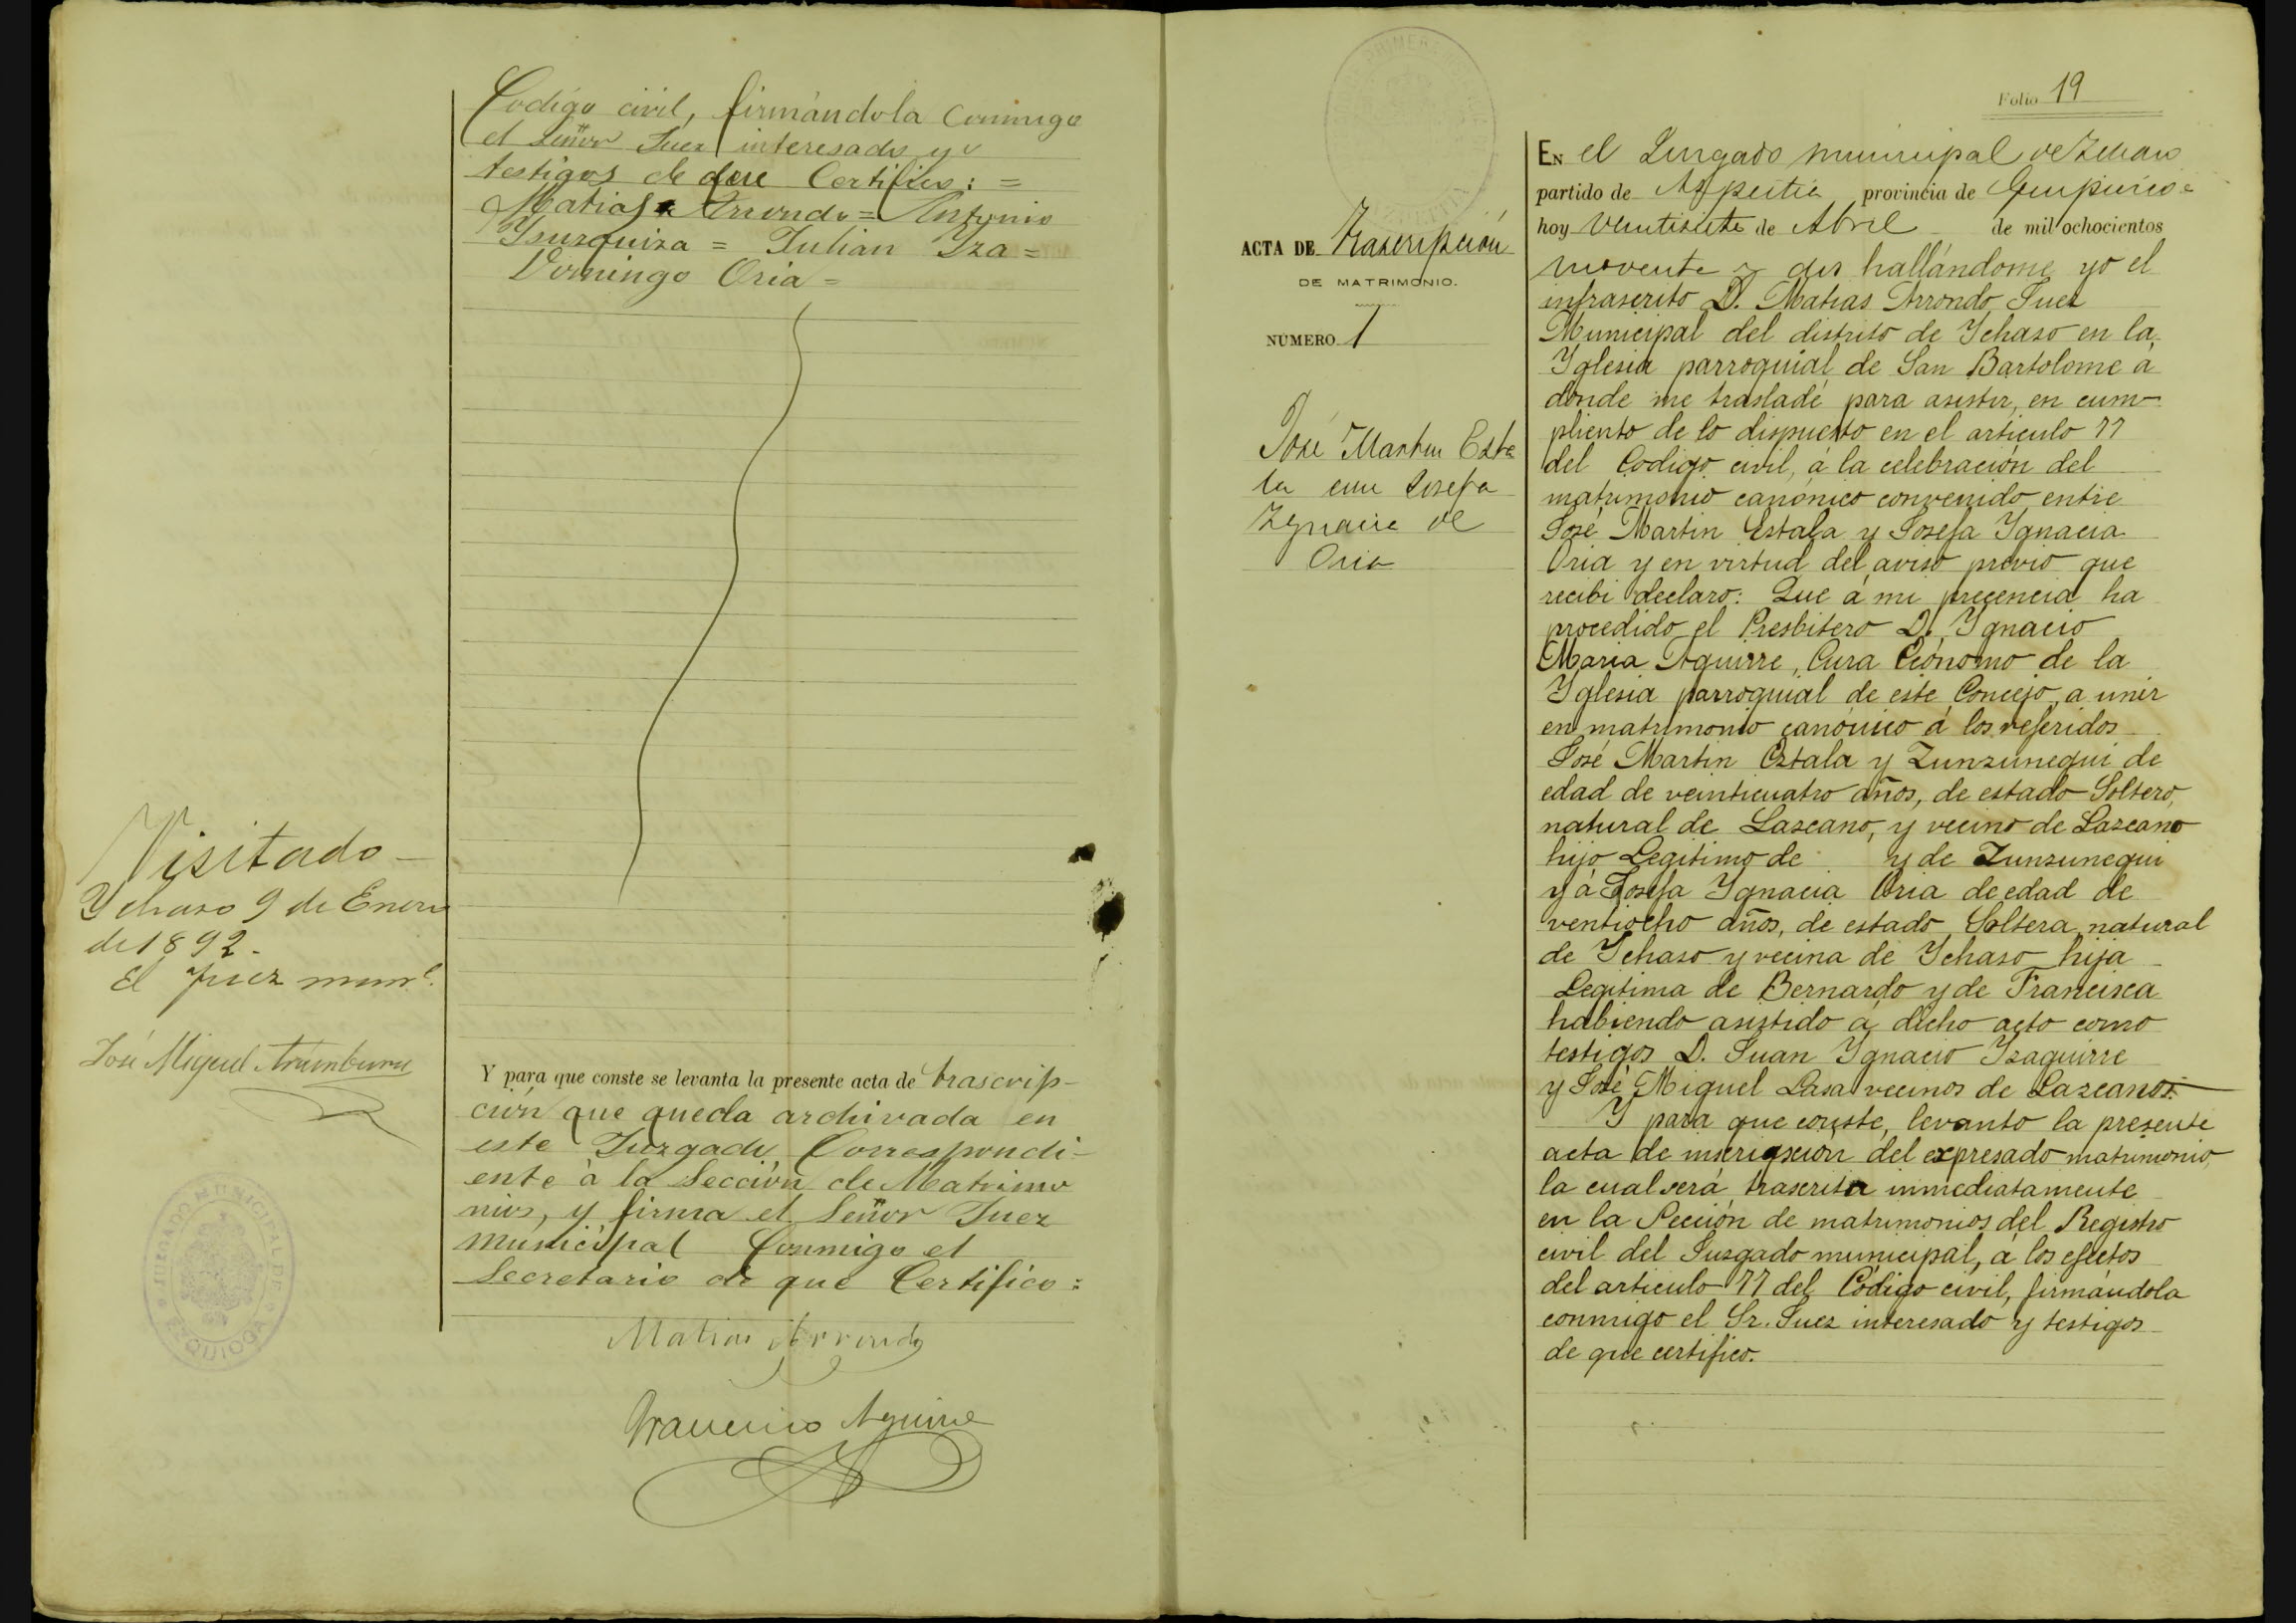 Codigo civil, firmándola Conmigo
el Señor Juez interesado y
testigos de que Certifico: =
Matias Arrondo = Antonio
Ysurquiza = Julian Yza =
Domingo Oria =
Visitado
Ychaso 9 de Enero
de 1892.
El Juez munl.
José Miguel Aramburu
Y para que conste se levanta la presente acta de trascrip-
ción que queda archivada en
este Juzgado Correspondi-
ente à la Sección de Matrimo
nios, y firma el Señor Juez
Municipal Conmigo el
Secretario de que Certifico:
Matias Arrondo
Francisco Aguirre
JUZGADO MUNICIPAL DE
EZQUIOGA
Folio 19
ACTA DE Trascripción
DE MATRIMONIO.
NÚMERO 1
José Martin Esta
la con Josefa
Ygnacia de
Oria
En el Juzgado municipal de Ichaso
partido de Azpeitia provincia de Guipúzcoa
hoy Veintisiete de Abril de mil ochocientos
noventa y dos hallándome yo el
infrascrito D. Matias Arrondo Juez
Municipal del distrito de Ychaso en la
Yglesia parroquial de San Bartolome á
donde me trasladé para asistir, en cum-
pliento de lo dispuesto en el articulo 77
del Codigo civil, á la celebración del
matrimonio canónico convenido entre
José Martin Estala y Josefa Ygnacia
Oria y en virtud del aviso previo que
recibi declaro: Que á mi precencia ha
procedido el Presbitero D. Ygnacio
Maria Aguirre, Cura Ecónomo de la
Yglesia parroquial de este Concejo, a unir
en matrimonio canónico á los referidos
José Martin Estala y Zunzunegui de
edad de veinticuatro años, de estado Soltero,
natural de Lazcano, y vecino de Lazcano
hijo Legitimo de y de Zunzunegui
y á Josefa Ygnacia Oria de edad de
ventiocho años, de estado Soltera natural
de Ychaso y vecina de Ychaso hija
Legitima de Bernardo y de Francisca
habiendo asistido á dicho acto como
testigos D. Juan Ygnacio Yzaguirre
y José Miguel Lasa vecinos de Lazcano.
Y para que conste, levanto la presente
acta de inscripción del expresado matrimonio,
la cual será trascrita inmediatamente
en la Sección de matrimonios del Registro
civil del Juzgado municipal, á los efectos
del articulo 77 del Código civil, firmándola
conmigo el Sr. Juez interesado y testigos
de que certifico.